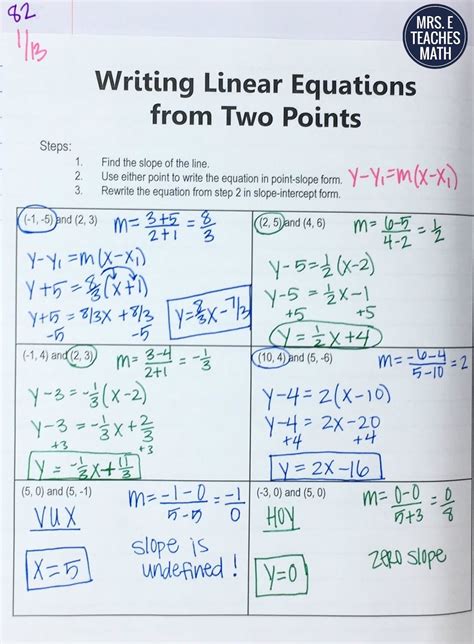 82
1/13
MRS. E
TEACHES
MATH
Writing Linear Equations
from Two Points
Steps:
1. Find the slope of the line.
2. Use either point to write the equation in point-slope form. y-y₁=m(x-x₁)
3. Rewrite the equation from step 2 in slope-intercept form.
(-1, -5) and (2, 3) m= 3+5/2+1 = 8/3
y-y₁=m(x-x₁)
y+5=8/3(x+1)
y+5=8/3x+8/3
-5 -5
y=8/3x-7/3
(2, 5) and (4, 6) m= 6-5/4-2 = 1/2
y-5=1/2(x-2)
y-5=1/2x-1
+5 +5
y=1/2x+4
(-1, 4) and (2, 3) m= 3-4/2+1 = -1/3
y-3=-1/3(x-2)
y-3=-1/3x+2/3
+3 +3
y=-1/3x+11/3
(10, 4) and (5, -6) m= -6-4/5-10 = 2
y-4=2(x-10)
y-4=2x-20
+4 +4
y=2x-16
(5, 0) and (5, -1) m= -1-0/5-5 = -1/0
VUX
slope is
undefined!
x=5
(-3, 0) and (5, 0) m= 0-0/5+3 = 0/8
HOY
zero slope
y=0